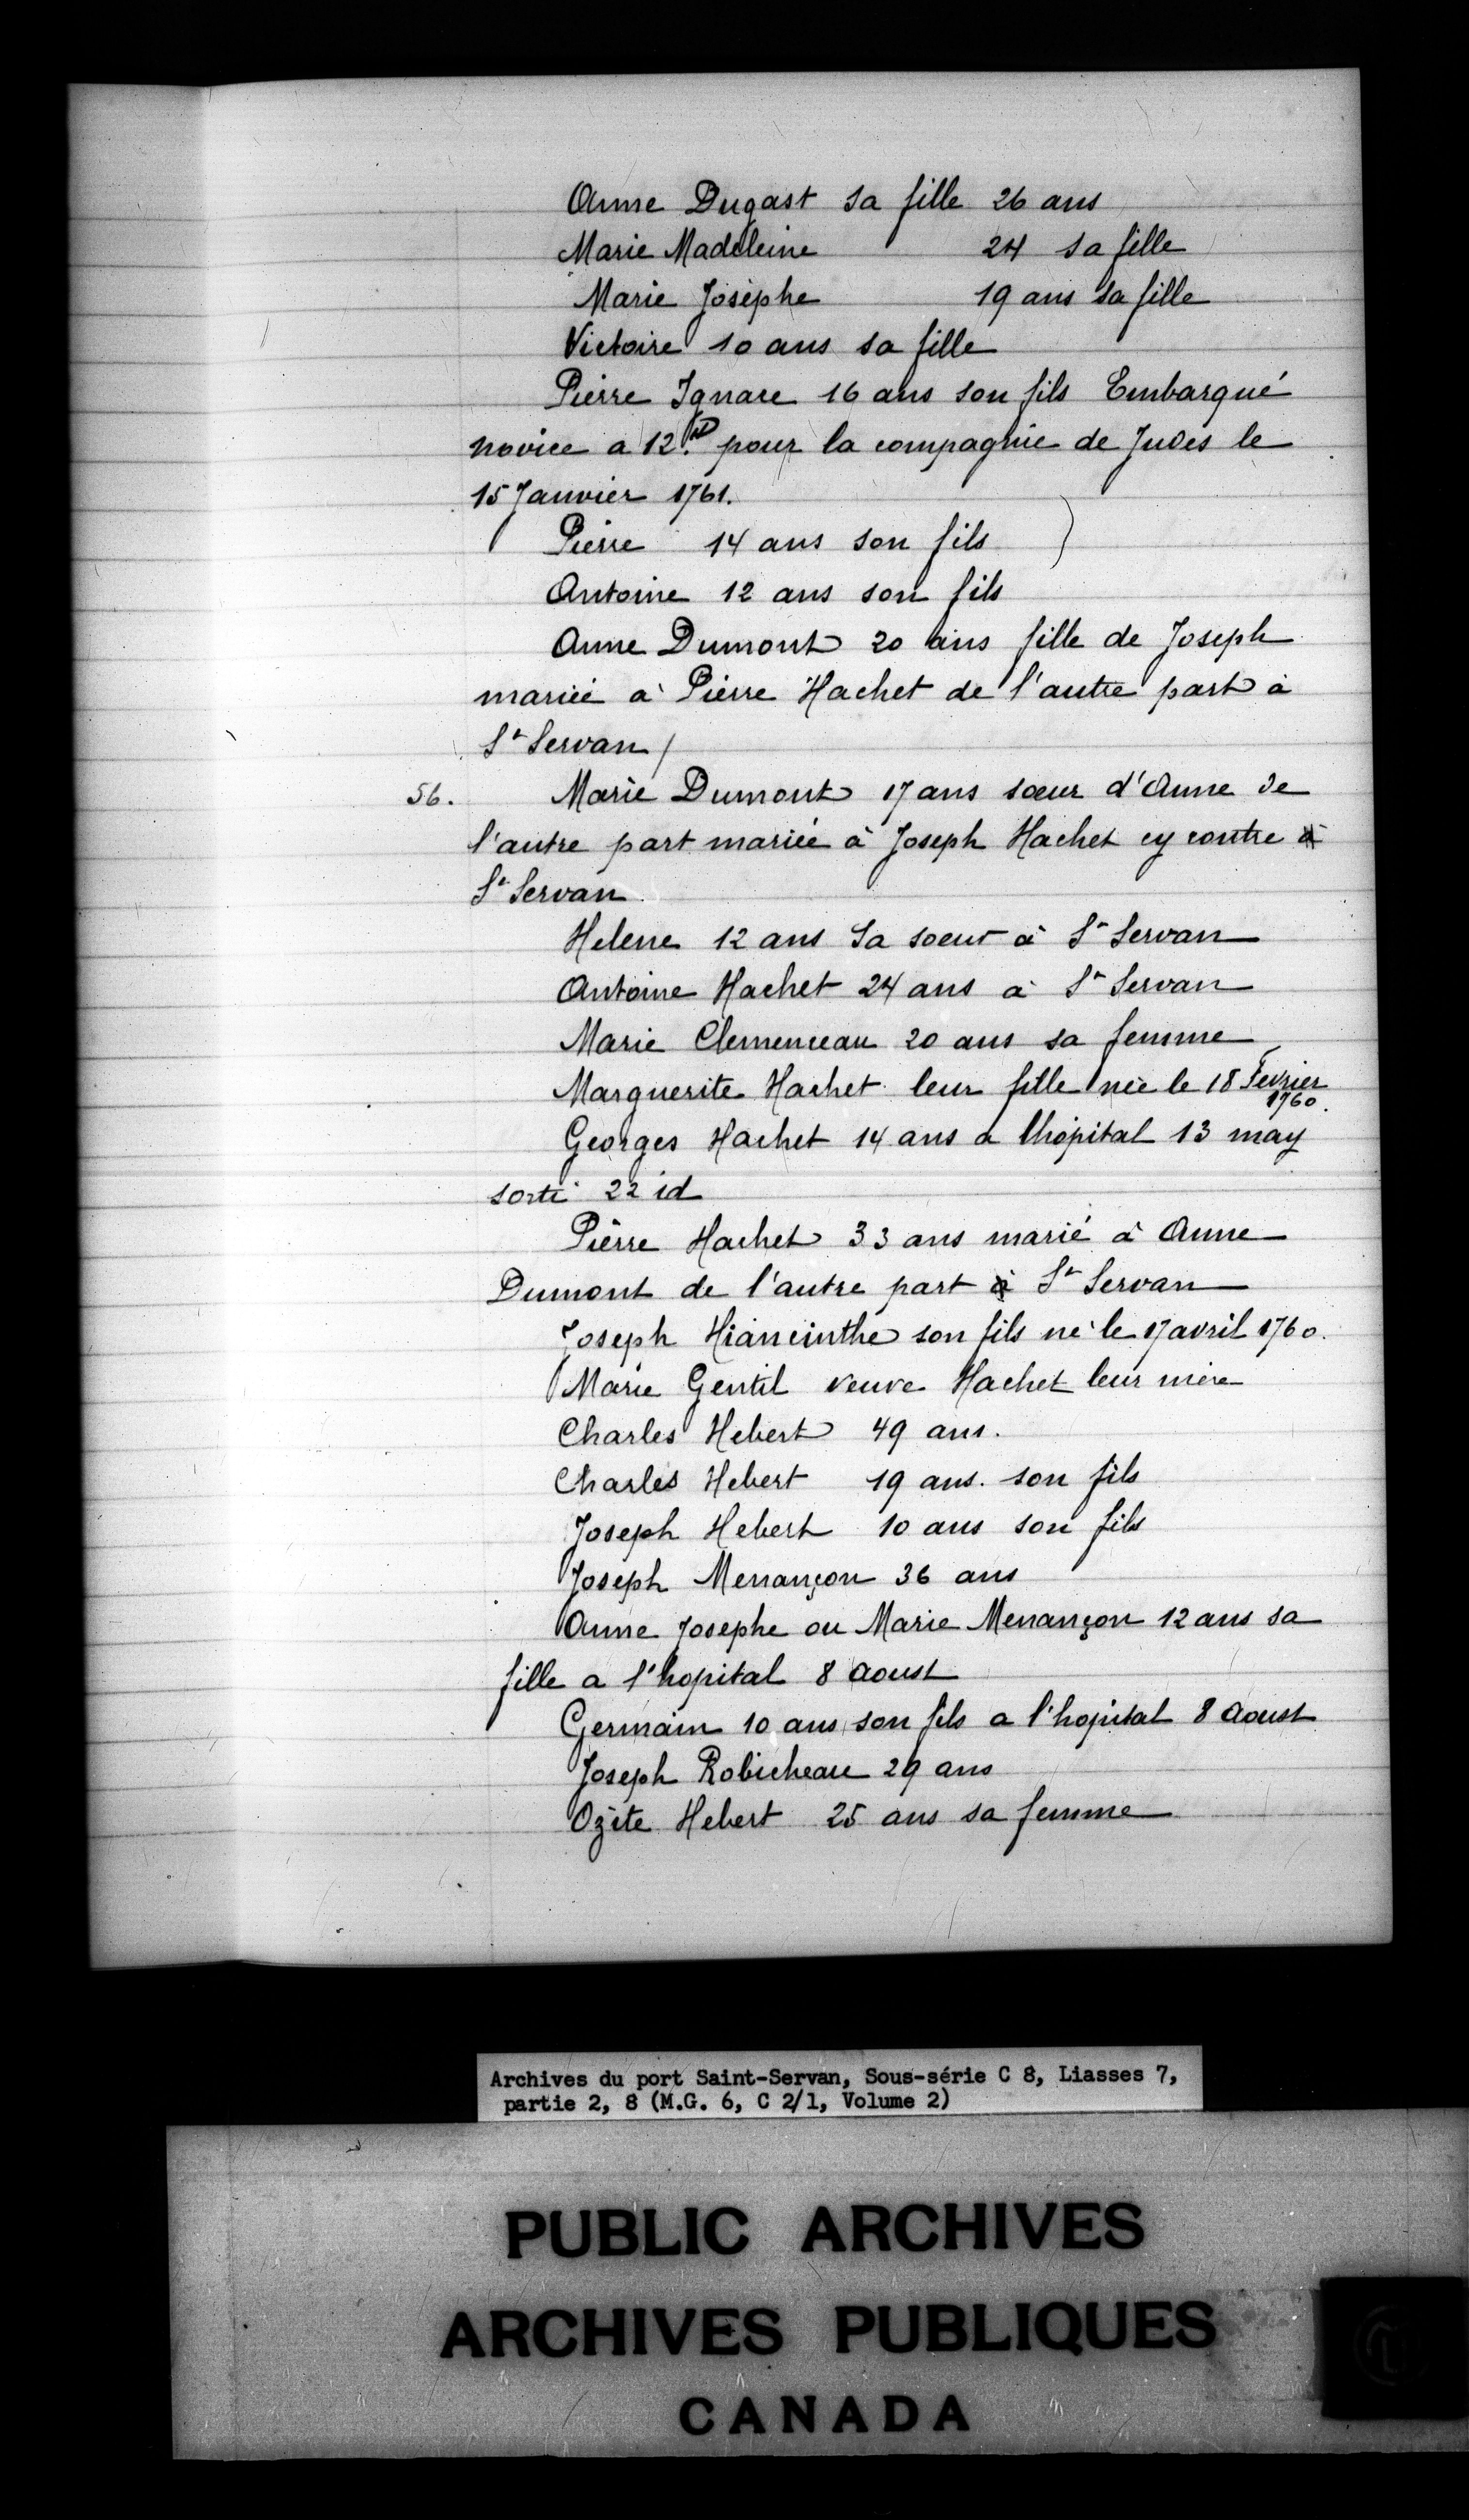 Anne Dugast sa fille 26 ans
Marie Madeleine 24 sa fille
Marie Josèphe 19 ans sa fille
Victoire 10 ans sa fille
Pierre Ignace 16 ans son fils Embarqué
novice a 12.# pour la compagnie de Judes le
15 Janvier 1761.
Pierre 14 ans son fils )
Antoine 12 ans son fils
Anne Dumont 20 ans fille de Joseph
mariée à Pierre Hachet de l'autre part à
St Servan /
56. Marie Dumont 17 ans soeur d'Anne de
l'autre part mariée à Joseph Hachet cy contre à
St Servan
Helene 12 ans sa soeur à St Servan
Antoine Hachet 24 ans à St Servan
Marie Clemenceau 20 ans sa femme
Marguerite Hachet leur fille née le 18 Fevrier
1760.
Georges Hachet 14 ans a lhôpital 13 may
sorti 22 id
Pierre Hachet 33 ans marié à Anne
Dumont de l'autre part à St Servan
Joseph Hiancinthe son fils né le 17 avril 1760.
Marie Gentil veuve Hachet leur mère
Charles Hebert 49 ans.
Charles Hebert 19 ans. son fils
Joseph Hebert 10 ans son fils
Joseph Menançon 36 ans
Anne Josephe ou Marie Menançon 12 ans sa
fille a l'hopital 8 aoust
Germain 10 ans son fils a l'hopital 8 aoust
Joseph Robicheau 29 ans
Ozite Hebert 25 ans sa femme
Archives du port Saint-Servan, Sous-série C 8, Liasses 7,
partie 2, 8 (M.G. 6, C 2/1, Volume 2)
PUBLIC ARCHIVES
ARCHIVES PUBLIQUES
CANADA